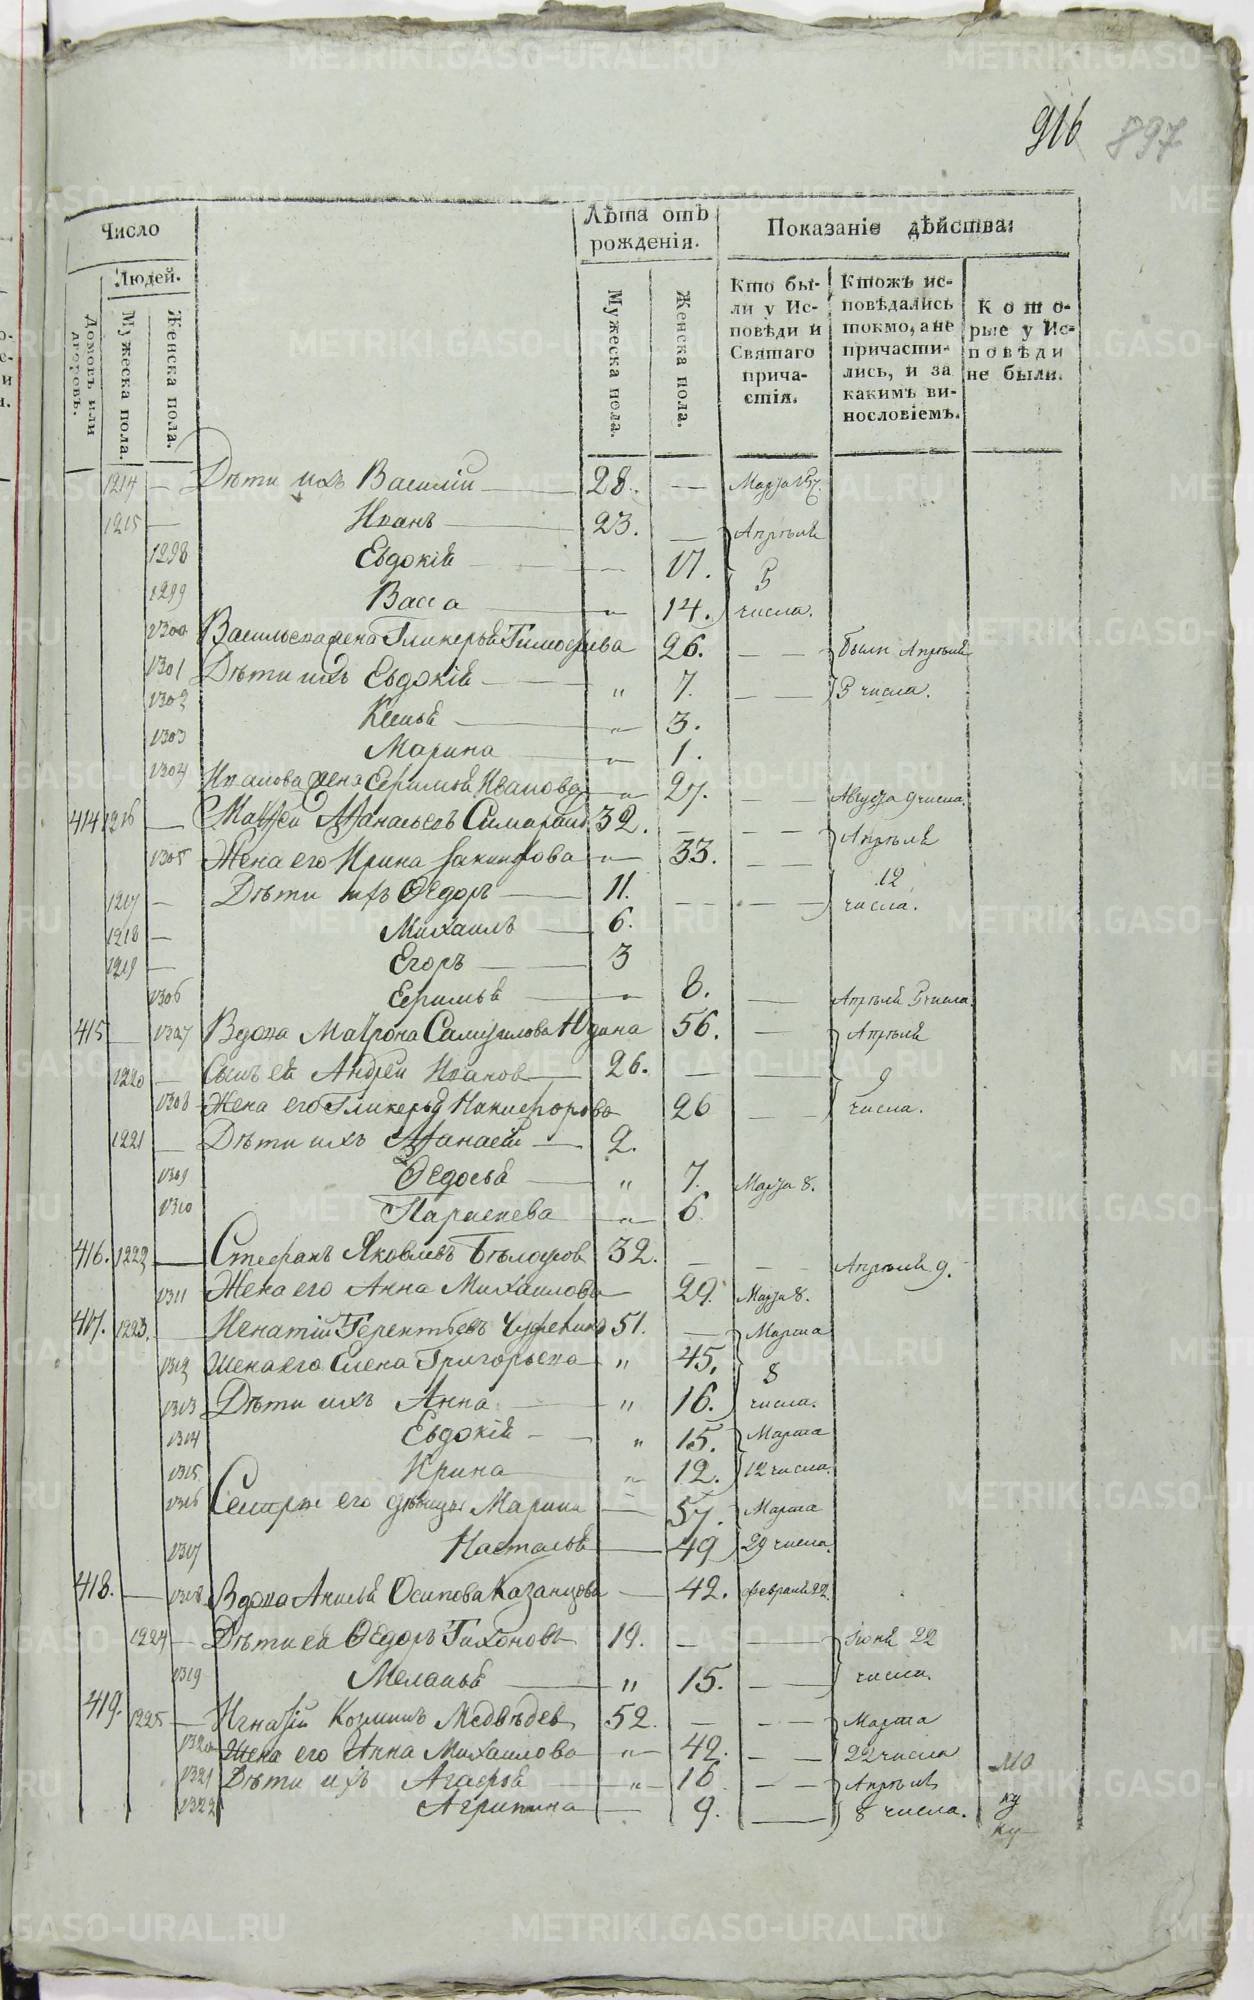 916 897
Число
Лѣта отъ рожденія.
Показаніе дѣйства:
Людей.
Домовъ или дворовъ.
Мужеска пола.
Женска пола.
Мужеска пола.
Женска пола.
Кто бы-
ли у Ис-
повѣди и
Святаго
прича-
стія.
Ктожъ ис-
повѣдались
токмо, а не
причасти-
лись, и за
какимъ ви-
нословіемъ.
Кото-
рые у Ис-
повѣди
не были.
1214 — Дѣти ихъ Василій — 28. — Марта
1215 — Иванъ — 23. — Апрѣля
1298 Евдокія — 17. 5
1299 Васса — " 14. числа.
1300 Васильева жена Гликерья Тимофеева 26. — — были Апрѣля
1301 Дѣти ихъ Евдокія — " 7. — — 5 числа.
1302 Ксенья — " 3.
1303 Марина — " 1.
1304 Иванова жена Иванова — " 27. — — Августа 9 числа.
414 1216 — 32. — — Апрѣля
1305 Жена его Ирина — " 33. — 12
1217 — Дѣти ихъ Ѳедоръ — 11. — — числа.
1218 — Михаилъ — 6.
1219 — Егоръ — 3
1306 — " 8. — Апрѣля 5 числа.
415 — 1307 Вдова Матрона Самуилова Юдина 56. — Апрѣля
1220 — Сынъ ея Андрей Иванов — 26. — — 9
1308 Жена его Гликерья Никифорова 26 — числа.
1221 — Дѣти ихъ Афанасій — 2.
1309 Ѳедосья — " 7. Марта 8.
1310 Параскева — " 6.
416. 1222 — Стефанъ Яковлевъ 32. — — Апрѣля 9.
1311 Жена его Анна Михаилова — 29. Марта 8.
417. 1223. — Терентьевъ 51. — Марта
1312 Жена его Елена Григорьева — " 45. 8
1313 Дѣти ихъ Анна — " 16. числа.
1314 Евдокія — " 15. Марта
1315 Ирина — " 12. 12 числа.
1316 Сестры его девицы Марина — 57. Марта
1317 Настасья — 49 29 числа.
418. — 1318 Вдова Анисья Осипова Казанцова — 42. февраля 22.
1224 — Дѣти ея Ѳедоръ Тихоновъ 19. — — Іюня 22
1319 Меланья — " 15. — числа.
419. 1225 — Игнатій Козминъ Медвѣдев 52. — — Марта
1320 Жена его Анна Михаилова — " 42. — — 22 числа
1321 Дѣти ихъ Агафья — " 16 — — Апрѣля
1322 Агрипина — 9. — 8 числа.
METRIKI.GASO-URAL.RU